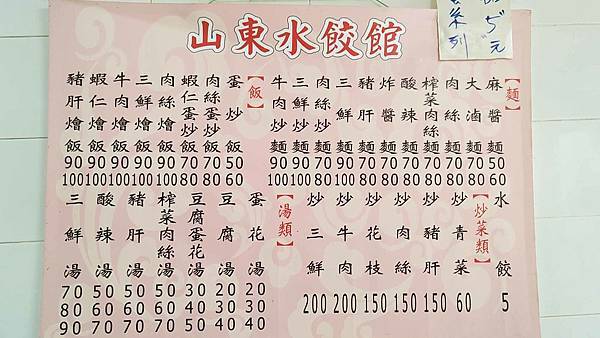 山東水餃館
系列
元
【麵】
麻醬麵 50 60
大滷麵 70 80
肉絲麵 70 80
榨菜肉絲麵 70 80
酸辣麵 70 80
炸醬麵 70 80
豬肝麵 70 80
三鮮麵 80 100
肉絲炒麵 70 80
三鮮炒麵 90 100
牛肉炒麵 90 100
【飯】
蛋炒飯 50 60
肉絲蛋炒飯 70 80
蝦仁蛋炒飯 70 80
肉絲燴飯 80 100
三鮮燴飯 90 100
牛肉燴飯 90 100
蝦仁燴飯 90 100
豬肝燴飯 90 100
水餃 5
【炒菜類】
炒青菜 60
炒豬肝 150
炒肉絲 150
炒花枝 150
炒牛肉 200
炒三鮮 200
【湯類】
蛋花湯 20 30 40
豆腐湯 20 30 40
豆腐蛋花湯 30 40 50
榨菜肉絲湯 50 60 70
豬肝湯 50 60 70
酸辣湯 50 60 70
三鮮湯 70 80 90